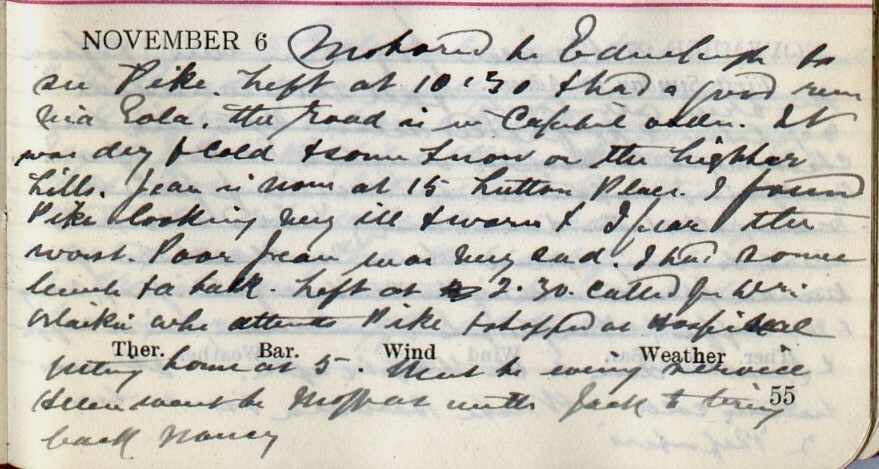 NOVEMBER 6 Motored to Edinburgh to
see Pike. Left at 10.30 & had a good run
via Eola. the road is in capital order. It
was dry & cold & some snow on the higher
hills. Jean is now at 15 Hutton Place. I found
Pike looking very ill & worn & I fear the
worst. Poor Jean was very sad. I had some
lunch & a talk. Left at 2.30. called for
who attends Pike & stopped at Hospital
Ther. Bar. Wind Weather
getting home at 5. Went to evening service
went to Moffat with Jack to bring 55
back Nancy